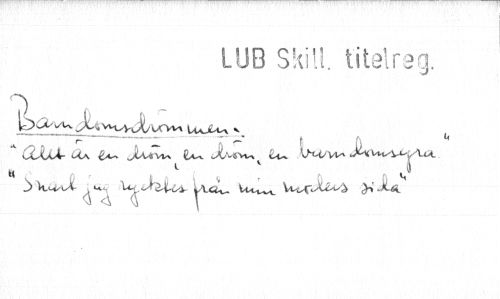 LUB Skill. titelreg.
Barndomsdrömmen.
"Allt är en dröm, en dröm, en barndomsyra."
"Snart jag rycktes från min moders sida"